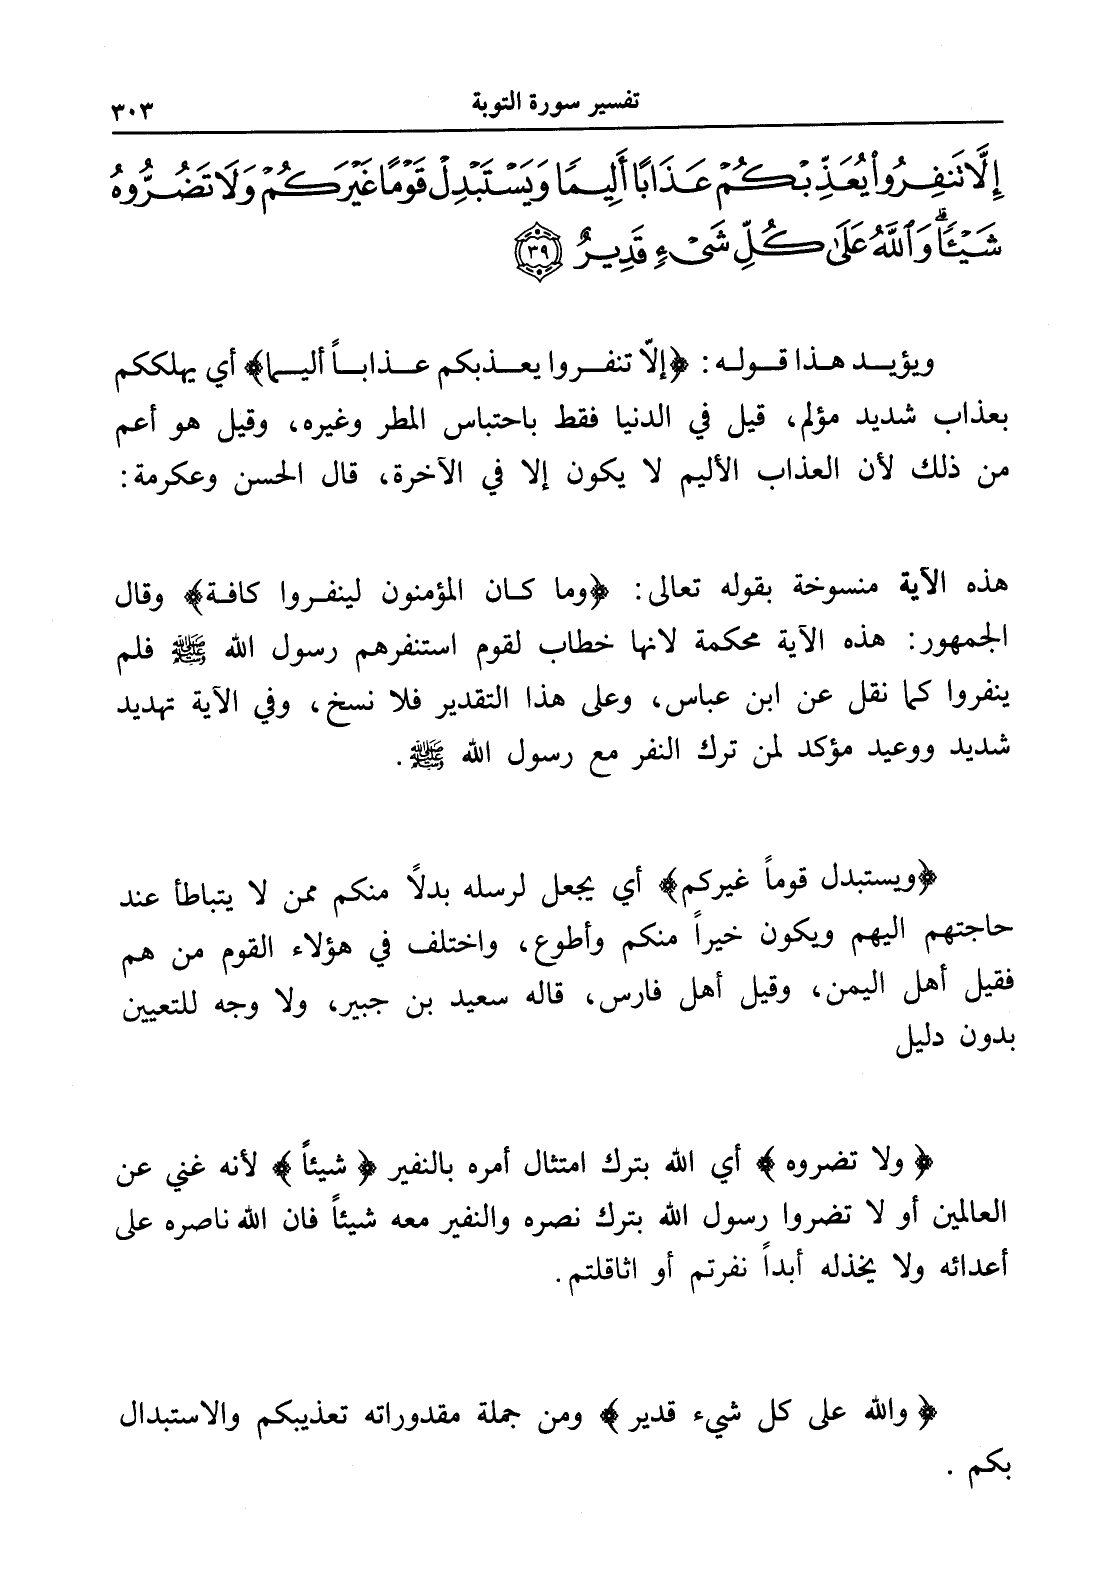 تفسير سورة التوبة ٣٠٣
إِلَّا تَنفِرُواْ يُعَذِّبْكُمْ عَذَابًا أَلِيمًا وَيَسْتَبْدِلْ قَوْمًا غَيْرَكُمْ وَلَا تَضُرُّوهُ
شَيْـًٔا ۗ وَٱللَّهُ عَلَىٰ كُلِّ شَىْءٍ قَدِيرٌ ﴿٣٩﴾
ويؤيـد هـذا قـولـه: ﴿إلّا تنفـروا يعـذبكم عـذابـاً أليـما﴾ أي يهلككم
بعذاب شديد مؤلم، قيل في الدنيا فقط باحتباس المطر وغيره، وقيل هو أعم
من ذلك لأن العذاب الأليم لا يكون إلا في الآخرة، قال الحسن وعكرمة:
هذه الآية منسوخة بقوله تعالى: ﴿وما كـان المؤمنون لينفـروا كافـة﴾ وقال
الجمهور: هذه الآية محكمة لانها خطاب لقوم استنفرهم رسول الله ﷺ فلم
ينفروا كما نقل عن ابن عباس، وعلى هذا التقدير فلا نسخ، وفي الآية تهديد
شديد ووعيد مؤكد لمن ترك النفر مع رسول الله ﷺ.
﴿ويستبدل قوماً غيركم﴾ أي يجعل لرسله بدلًا منكم ممن لا يتباطأ عند
حاجتهم اليهم ويكون خيراً منكم وأطوع، واختلف في هؤلاء القوم من هم
فقيل أهل اليمن، وقيل أهل فارس، قاله سعيد بن جبير، ولا وجه للتعيين
بدون دليل
﴿ ولا تضروه ﴾ أي الله بترك امتثال أمره بالنفير ﴿ شيئاً ﴾ لأنه غني عن
العالمين أو لا تضروا رسول الله بترك نصره والنفير معه شيئاً فان الله ناصره على
أعدائه ولا يخذله أبداً نفرتم أو اثاقلتم.
﴿ والله على كل شيء قدير ﴾ ومن جملة مقدوراته تعذيبكم والاستبدال
بكم .